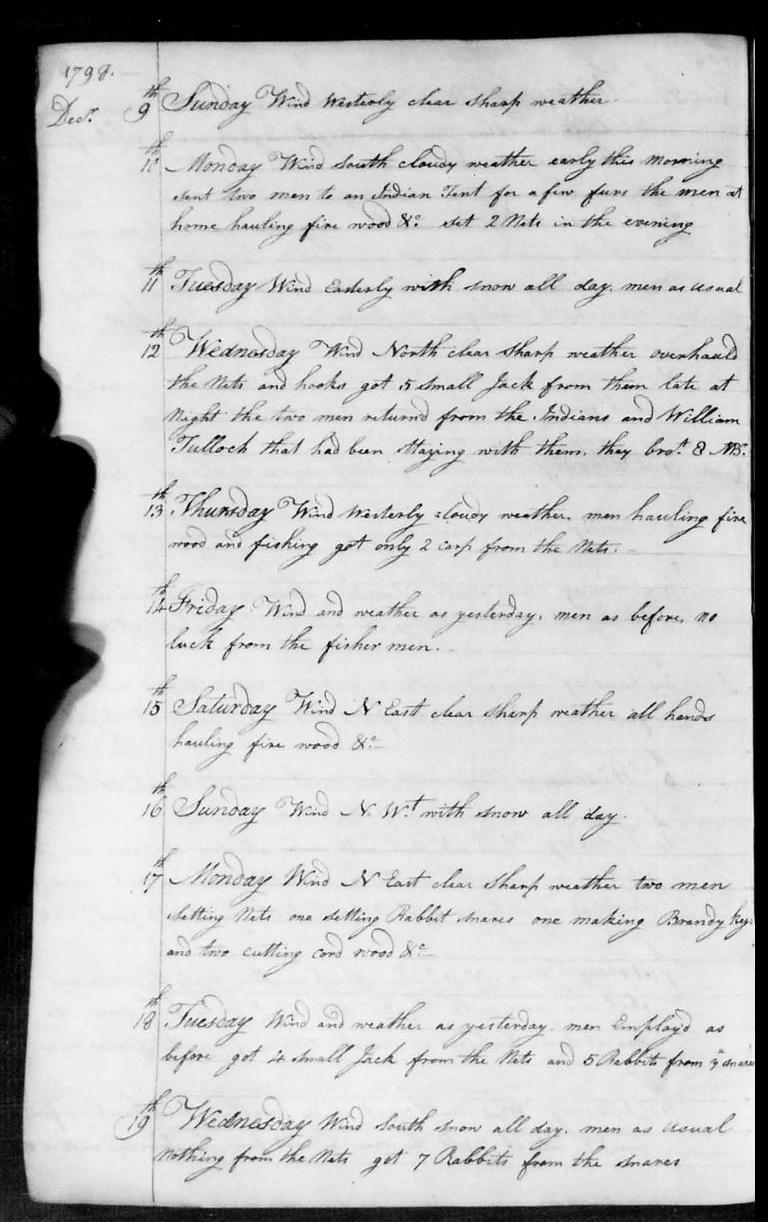 1798.
Decr. 9th Sunday Wind Westerly clear sharp weather.
10th Monday Wind South cloudy weather early this morning
sent two men to an Indian Tent for a few furs the men at
home hauling fire wood &c. set 2 Nets in the evening
11th Tuesday Wind Easterly with snow all day. men as usual
12th Wednesday Wind North clear sharp weather overhauld
the Nets and hooks got 5 small Jack from them late at
Night the two men return'd from the Indians and William
Tulloch that had been staying with them. they brot. 8 MB.
13th Thursday Wind Westerly cloudy weather. men hauling fire
wood and fishing got only 2 carp from the Nets.
14th Friday. Wind and weather as yesterday. men as before. no
luck from the fisher men.
15th Saturday Wind N East clear sharp weather all hands
hauling fire wood &c
16th Sunday Wind N. Wt with snow all day.
17th Monday Wind N East clear sharp weather two men
setting Nets one setting Rabbit snares one making Brandy Keg
and two cutting cord wood &c
18th Tuesday Wind and weather as yesterday. men Employ'd as
before got 4 small Jack from the Nets and 5 Rabbits from ye snares
19th Wednesday Wind South snow all day. men as usual
Nothing from the Nets got 7 Rabbits from the snares